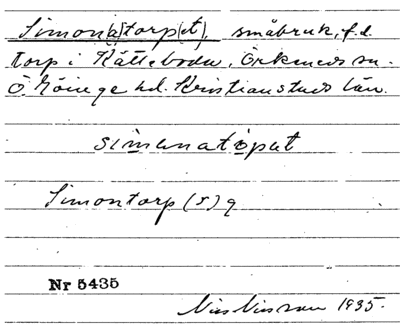 Simon(a)torp(et), småbruk, f.d.
torp i Kätteboda, Örkeneds sn.
Ö. Göinge hd. Kristianstads län.
simenatåpat
Simontorp (s) q
Nr 5435
Nils Nilsson 1935.